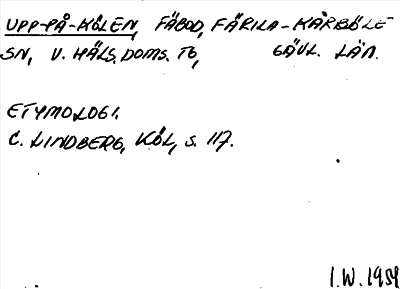 UPP-PÅ-KÖLEN, FÄBOD, FÄRILA-KÅRBÖLE
SN, V. HÄLS. DOMS. TG, GÄVL. LÄN.
ETYMOLOGI.
C. LINDBERG, KÖL, S. 117.
I.W. 1959